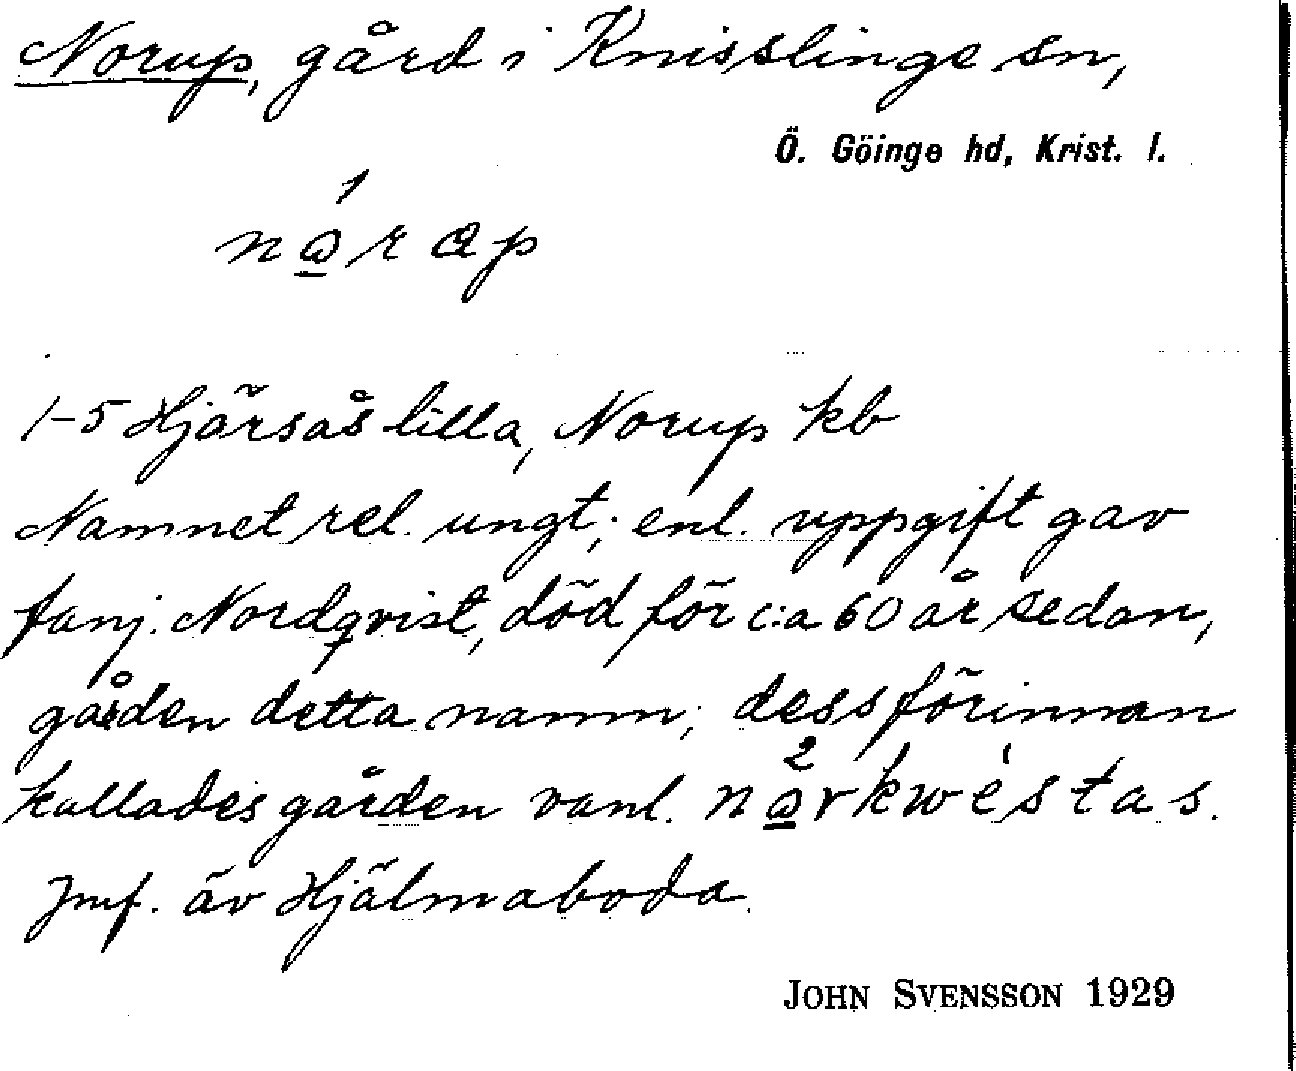 Norup, gård i Knisslinge sn,
Ö. Göinge hd, Krist. l.
1
nårap
1-5 Hjärsås lilla, Norup kb
Namnet rel. ungt; enl. uppgift gav
fanj. Nordqvist, död för c:a 60 år sedan,
gården detta namn; dessförinnan
kallades gården vanl. nå²rkwèstas.
Jmf. äv Hjälmaboda.
JOHN SVENSSON 1929